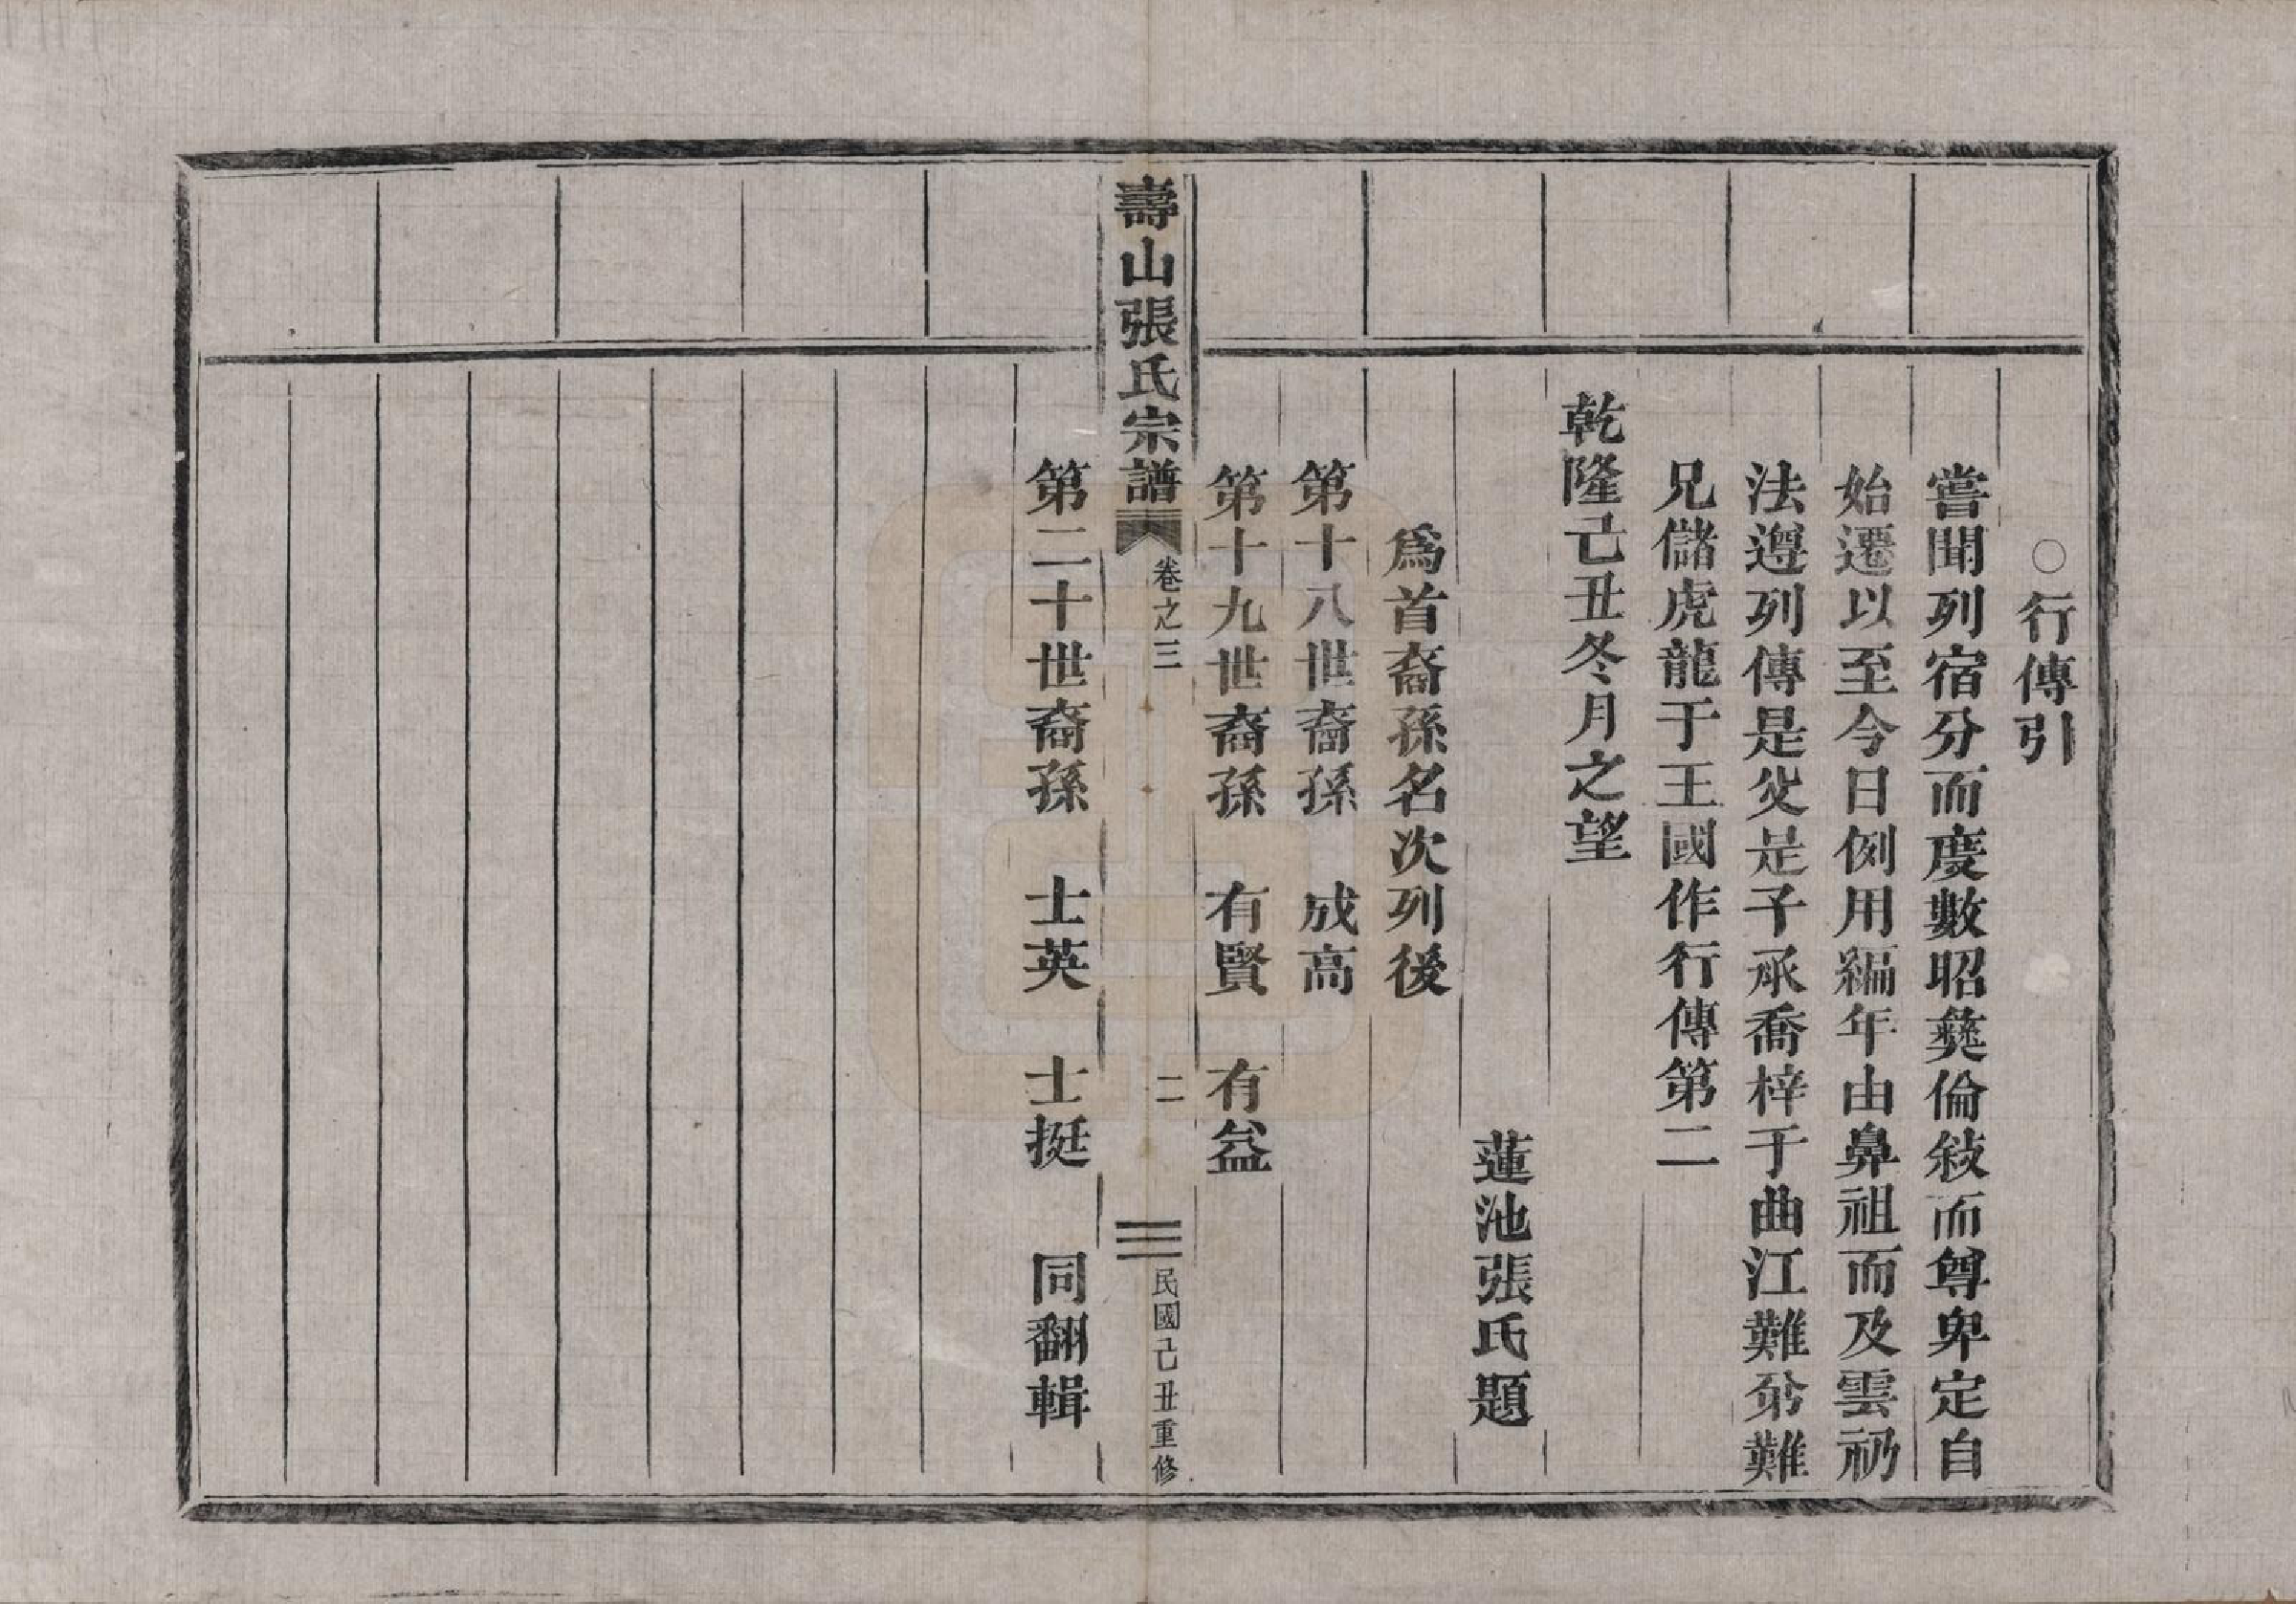 ○行傳引
嘗聞列宿分而度數昭彝倫敍而尊卑定自
始遷以至今日例用編年由鼻祖而及雲礽
法遵列傳是父是子承喬梓于曲江難弟難
兄儲虎龍于王國作行傳第二
乾隆己丑冬月之望
蓮池張氏題
爲首裔孫名次列後
第十八世裔孫 成高
第十九世裔孫 有賢 有益
壽山張氏宗譜 卷之三 二 三 民國己丑重修
第二十世裔孫 士英 士挺 同翻輯